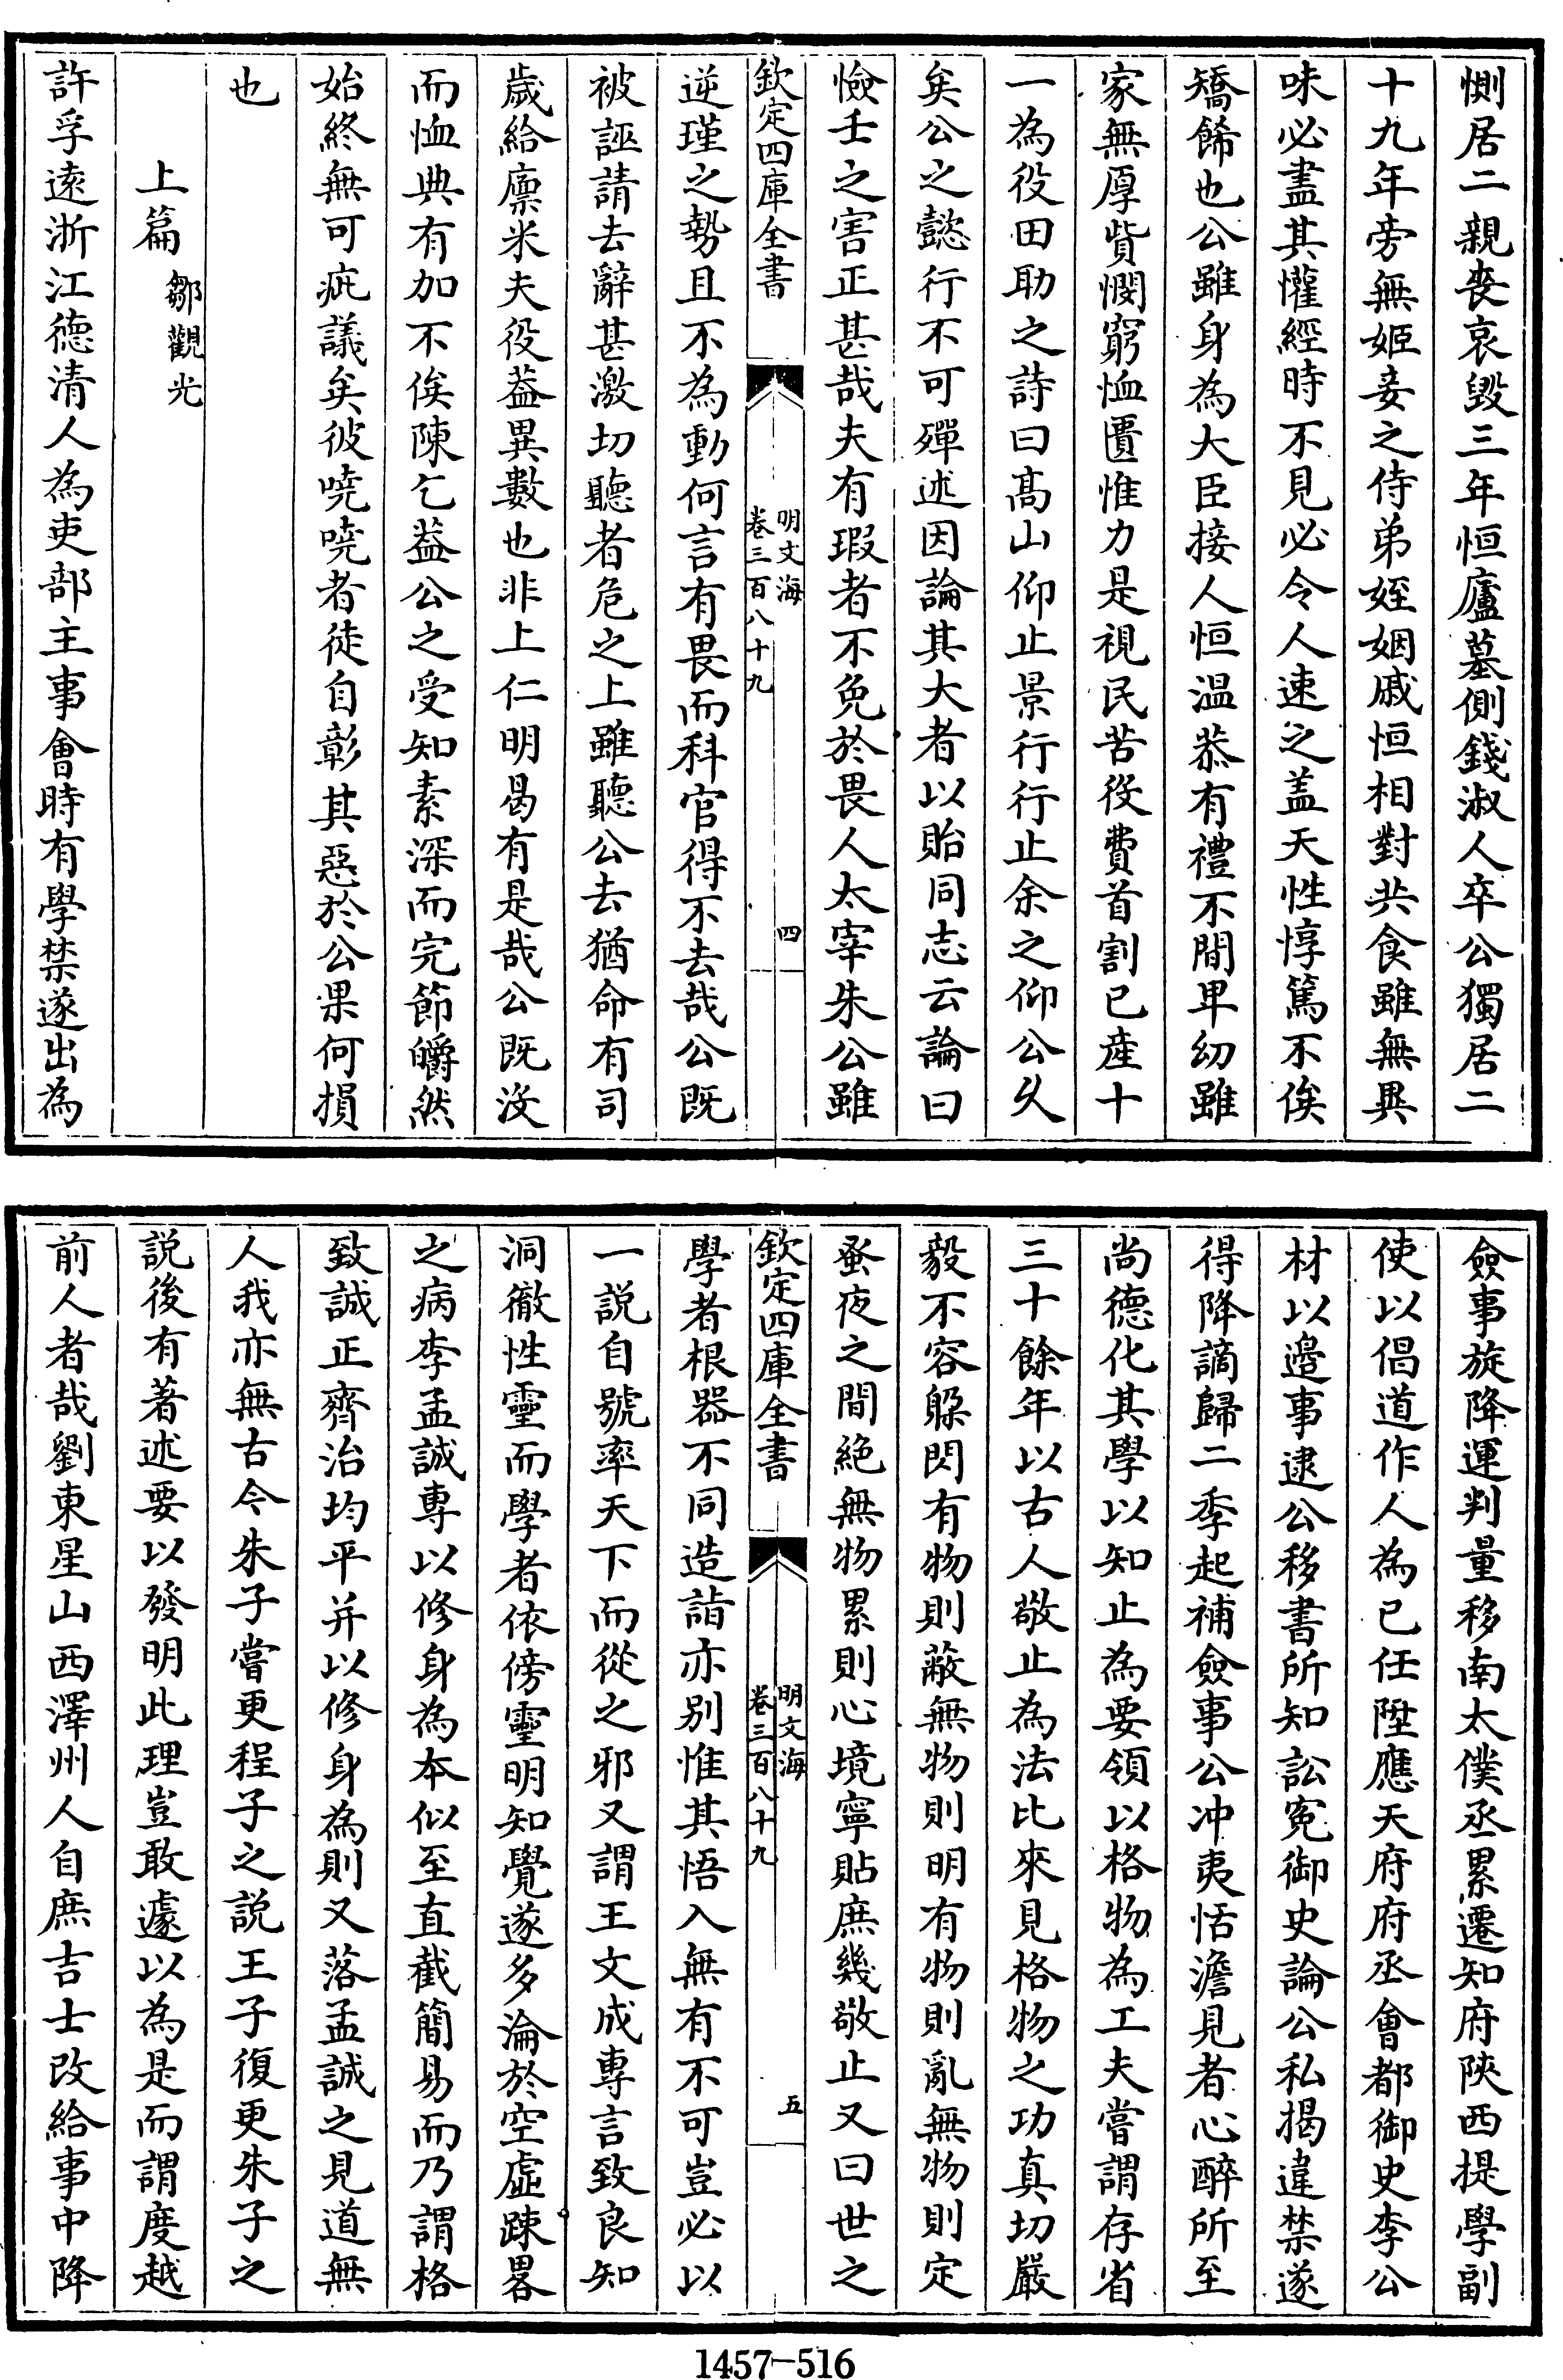 惻居二親喪哀毀三年恒廬墓側錢淑人卒公獨居二
十九年旁無姬妾之侍弟姪姻戚恒相對共食雖無異
味必盡其懽經時不見必令人速之盖天性惇篤不俟
矯餙也公雖身為大臣接人恒温恭有禮不間卑幼雖
家無厚貲憫窮恤匱惟力是視民苦役費首割已産十
一為役田助之詩曰髙山仰止景行行止余之仰公久
矣公之懿行不可殫述因論其大者以貽同志云論曰
憸壬之害正甚哉夫有瑕者不免於畏人太宰朱公雖
欽定四庫全書
明文海
卷三百八十九
四
逆瑾之勢且不為動何言有畏而科官得不去哉公既
被誣請去辭甚激切聽者危之上雖聽公去猶命有司
歲給廪米夫役葢異數也非上仁明曷有是哉公既没
而恤典有加不俟陳乞葢公之受知素深而完節皭然
始終無可疵議矣彼嘵嘵者徒自彰其惡於公果何損
也
上篇 鄒觀光
許孚逺浙江德清人為吏部主事會時有學禁遂出為
僉事旋降運判量移南太僕丞累遷知府陜西提學副
使以倡道作人為已任陞應天府府丞會都御史李公
材以邉事逮公移書所知訟寃御史論公私揭違禁遂
得降謫歸二季起補僉事公冲夷恬澹見者心醉所至
尚德化其學以知止為要領以格物為工夫嘗謂存省
三十餘年以古人敬止為法比來見格物之功真切嚴
毅不容躱閃有物則蔽無物則明有物則亂無物則定
蚤夜之間絶無物累則心境寧貼庶幾敬止又曰世之
欽定四庫全書
明文海
卷三百八十九
五
學者根器不同造詣亦别惟其悟入無有不可豈必以
一説自號率天下而從之邪又謂王文成専言致良知
洞徹性靈而學者依傍靈明知覺遂多淪於空虚踈畧
之病李孟誠専以修身為本似至直截簡易而乃謂格
致誠正齊治均平并以修身為則又落孟誠之見道無
人我亦無古今朱子嘗更程子之説王子復更朱子之
説後有著述要以發明此理豈敢遽以為是而謂度越
前人者哉劉東星山西澤州人自庶吉士改給事中降
1457-516